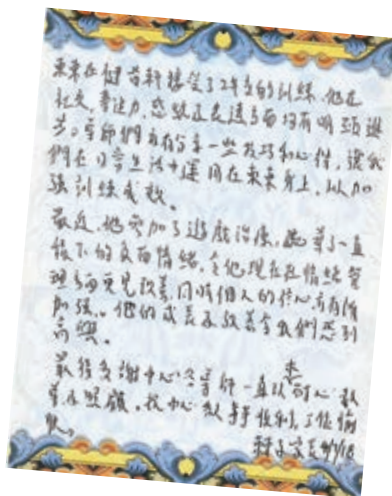 東東在健苗軒接受了2年多的訓練，他在
社交、專注力、感統及表達多面均有明顯進
步。導師們亦有分享一些技巧和心得，讓我
們在日常生活中運用在東東身上，以加
強訓練成效。
最近，他參加了遊戲治療，
積下的負面情緒，令他現在在情緒管
理多面更見改善，同時個人的信心亦有所
加強。他的成長及改善令我們感到
高興。
最後多謝中心各導師一直以來耐心教
導及照顧。祝中心 事 順利，工作愉
快。
家長